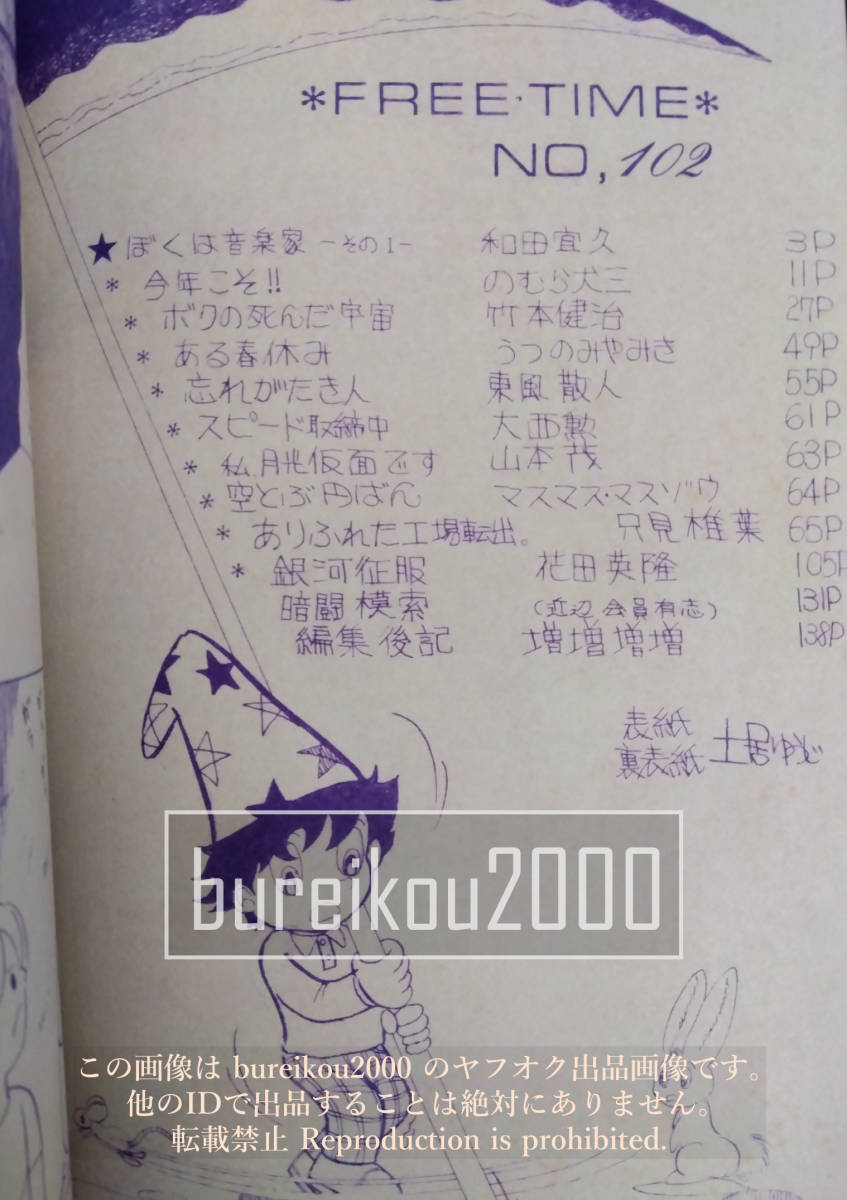 *FREE·TIME*
NO, 102
★ ぼくは音楽家 －その1－ 和田宜久 3P
* 今年こそ!! のむら犬三 11P
* ボクの死んだ宇宙 竹本健治 27P
* ある春休み うつのみやみき 49P
* 忘れがたき人 東風散人 55P
* スピード取締中 大西勲 61P
* 私、月光仮面です 山本茂 63P
* 空とぶ円ばん マスマス・マスゾウ 64P
* ありふれた工場転出。 只見椎葉 65P
* 銀河征服 花田英隆 105P
暗闘模索 (近辺会員有志) 131P
編集後記 増増増増 138P
表紙
裏表紙 土居ゆうじ
bureikou2000
この画像は bureikou2000 のヤフオク出品画像です。
他のIDで出品することは絶対にありません。
転載禁止 Reproduction is prohibited.